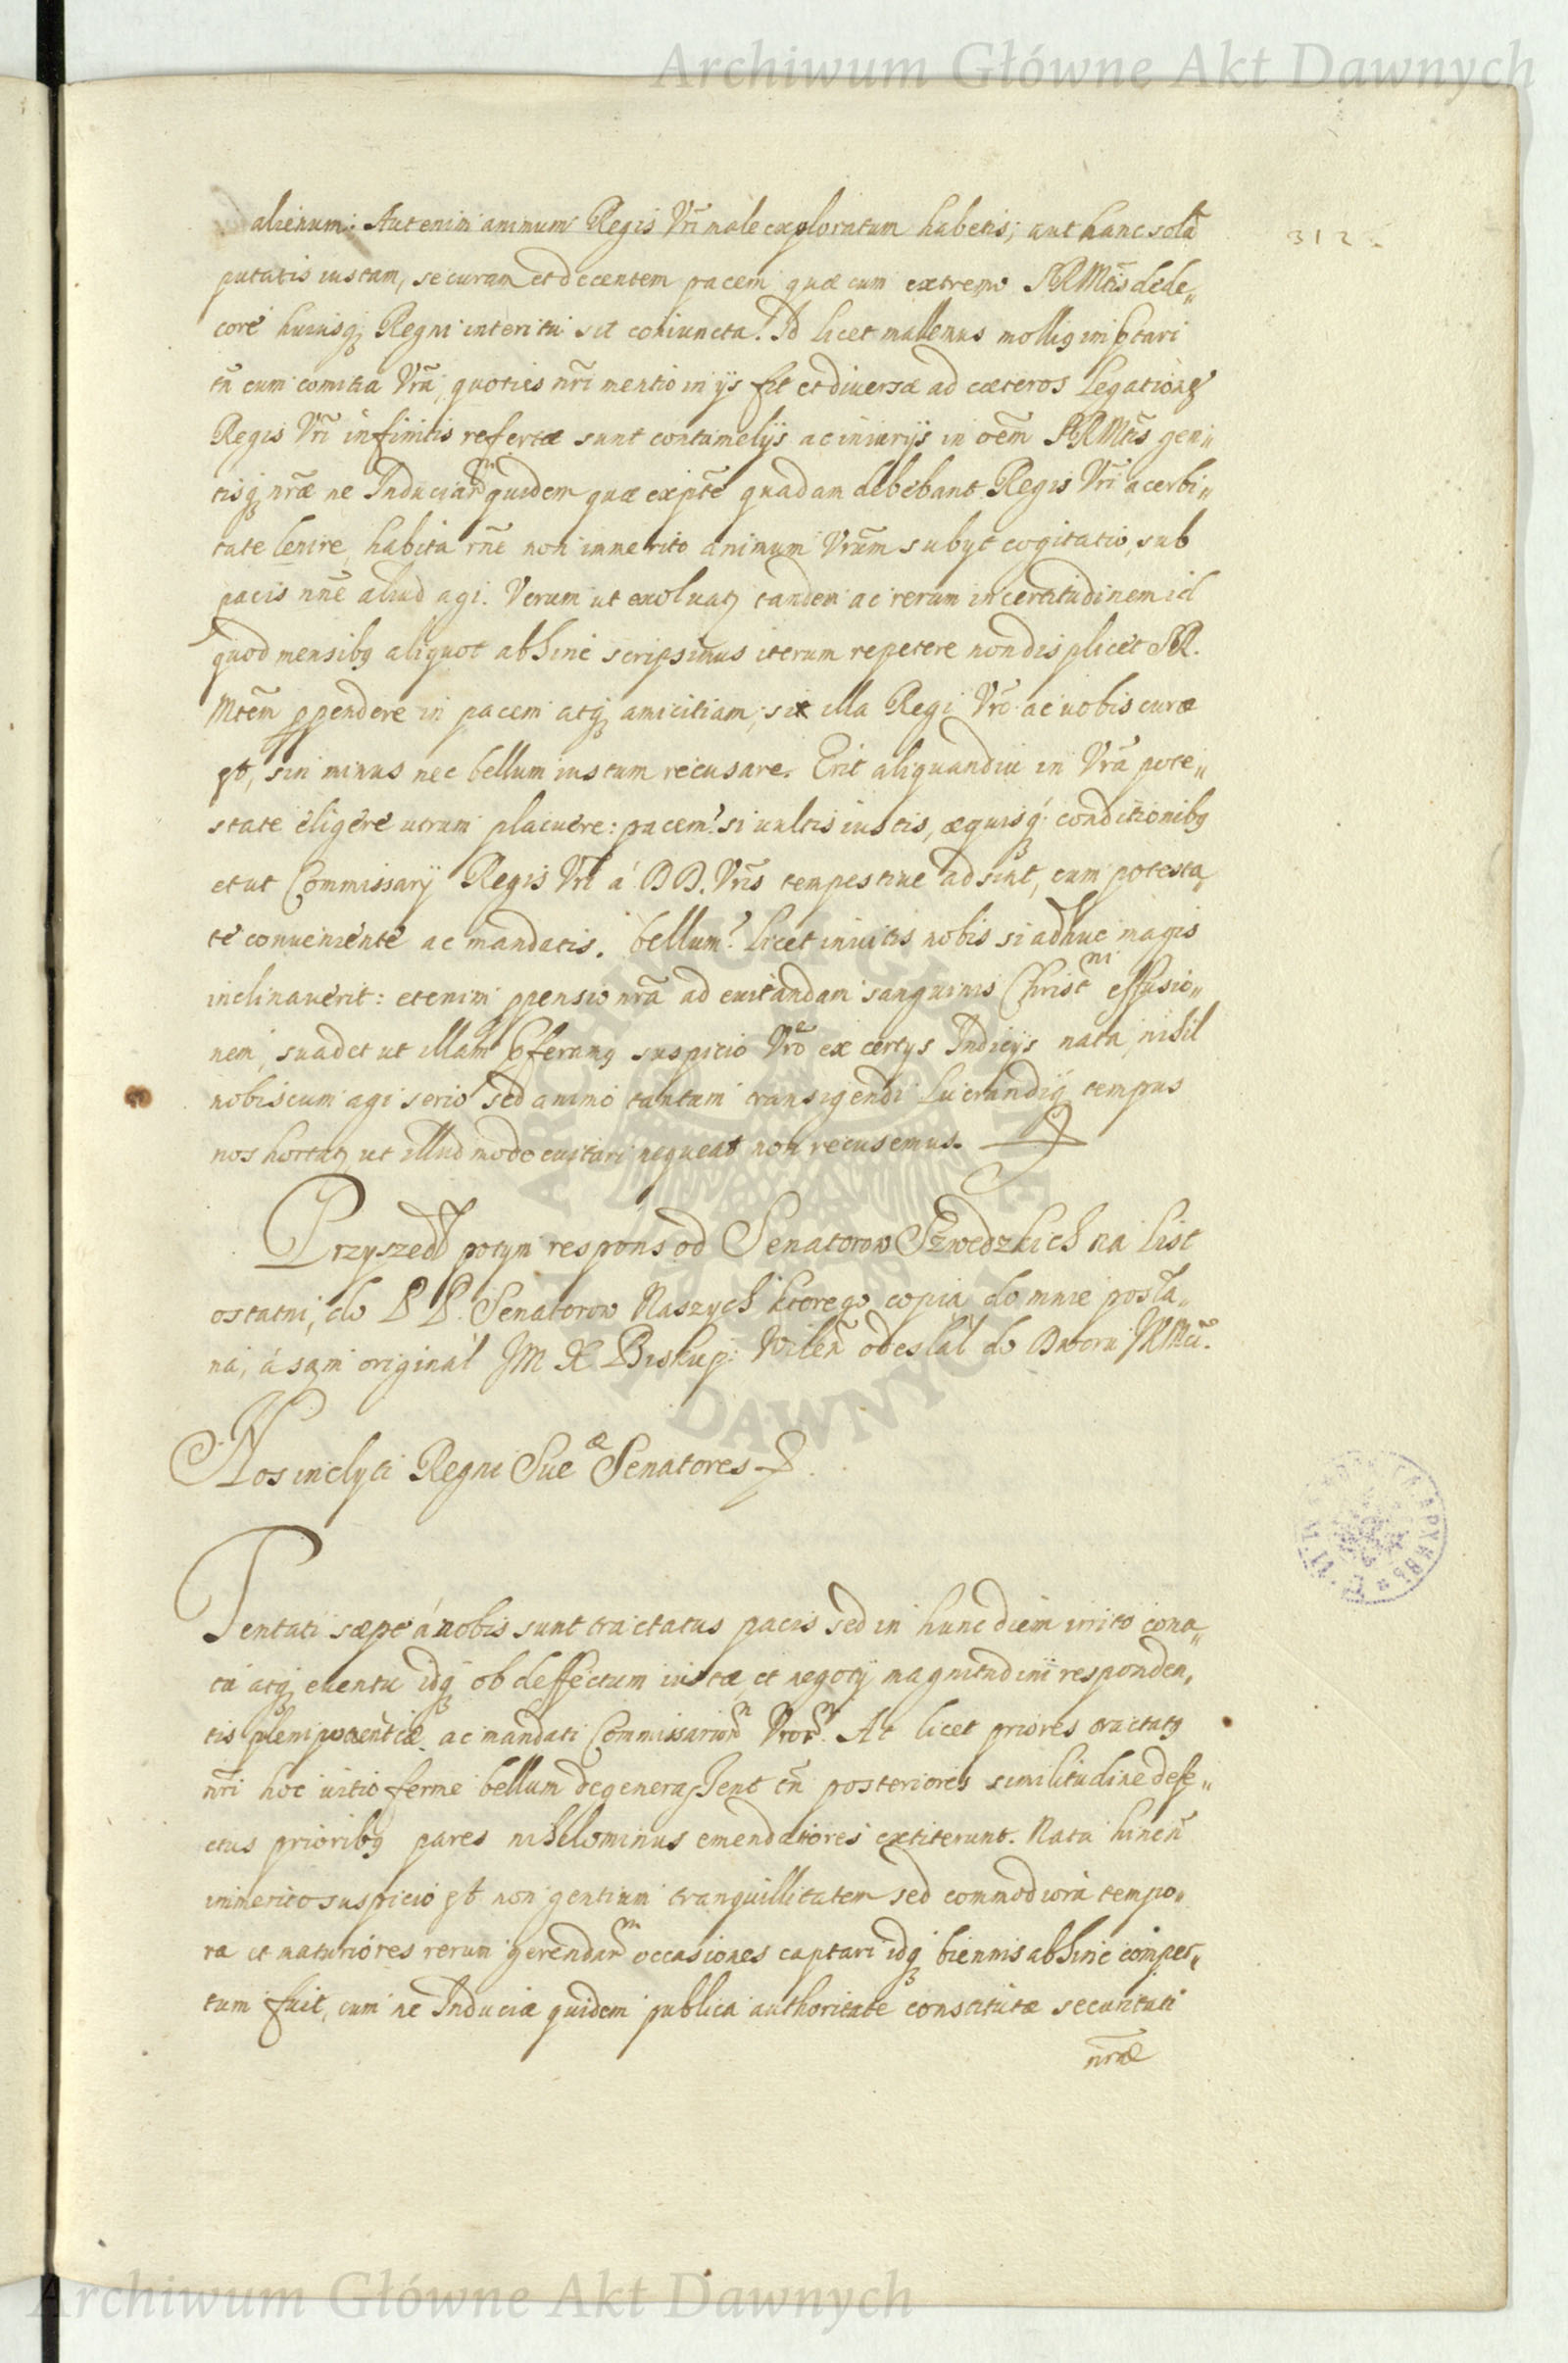 Archiwum Główne Akt Dawnych
312
alienum: Aut enim animum Regis Vrī male exploratum habetis; aut hanc solā
putatis iustam, securam et decentem pacem quæ cum extremo SRMtis dede„
core huiusq; Regni interitu sit coniuncta! Id licet mallemus mollig
tn̄ cum comitia Vrā, quoties nrī mentio in ijs fit et diversæ ad cæteros Legationes
Regis Vrī infinitis refertæ sunt contumelijs ac iniurijs in oēm SRMtis gen„
tisq; nrǣ ne Induciarm quidem quæ exptē quadam debebant Regis Vrī acerbi„
tate lenire, habita rnē non immerito animum Vrūm subyt cogitatio, sub
pacis nn̄e aliud agi. Verum ut exoluat, tandem ac rerum incertitudinem id
quod mensibq aliquot abhinc scripsimus iterum repetere non displicet SR.
Mtēm ppendere in pacem atq; amicitiam; si illa Regi Vrō ac vobis curæ
est, sin minus nec bellum iustum recusare. Erit aliquandiu in Vrā pote„
state eligere utrum placuere: pacem? si vultis iustis, æquisq; conditionibq
et ut Commissarij Regis Vrī á DD. Vrīs tempestive adsint, cum potesta„
te conveniente ac mandatis. bellum? licet invitis nobis si adhuc magis
inclinaverit: etenim ppensio nrā ad evitandam sanguinis Christni effusio„
nem, suadet ut illam suspicio Vrō ex certys Indicijs nata, nihil
nobiscum agi serio sed animo tantum transigendi lucrandiq; tempus
nos hortat, ut illud modo evitari nequeat non recusemus.
Przyszedł potym respons od Senatorow Szwedzkich na list
ostatni, do PP. Senatorow Naszych ktorego copia do mnie posła„
na, á sąm originał JM X Biskup Wileń odesłał do Dworu JKMći.
Nos inclyti Regni Sueæ Senatores
Tentati sæpe á nobis sunt tractatus pacis sed in hunc diem irrito cona„
tu atq; eventu idq; ob deffectum iustæ et negotij magnitudini responden„
tis plenipotentiæ ac mandati Commissariorm Vrorm. At licet priores tractatq
nrī hoc vitio ferme bellum degenerassent tn̄ posteriores similitudine defe„
ctus prioribq pares nihilominus emendatiores extiterunt. Nata hinc ñ
immerito suspicio est non gentium tranquillitatem sed commodiora tempo„
ra et maturiores rerum gerendarm occasiones captari idq; biennis abhinc comper„
tum fuit, cum ne Induciæ quidem publica authoritate constitutæ securitati
nrǣ
Archiwum Główne Akt Dawnych